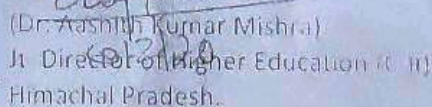 (Dr. Aashith Kumar Mishra)
Jt Director of Higher Education (C-II)
Himachal Pradesh.